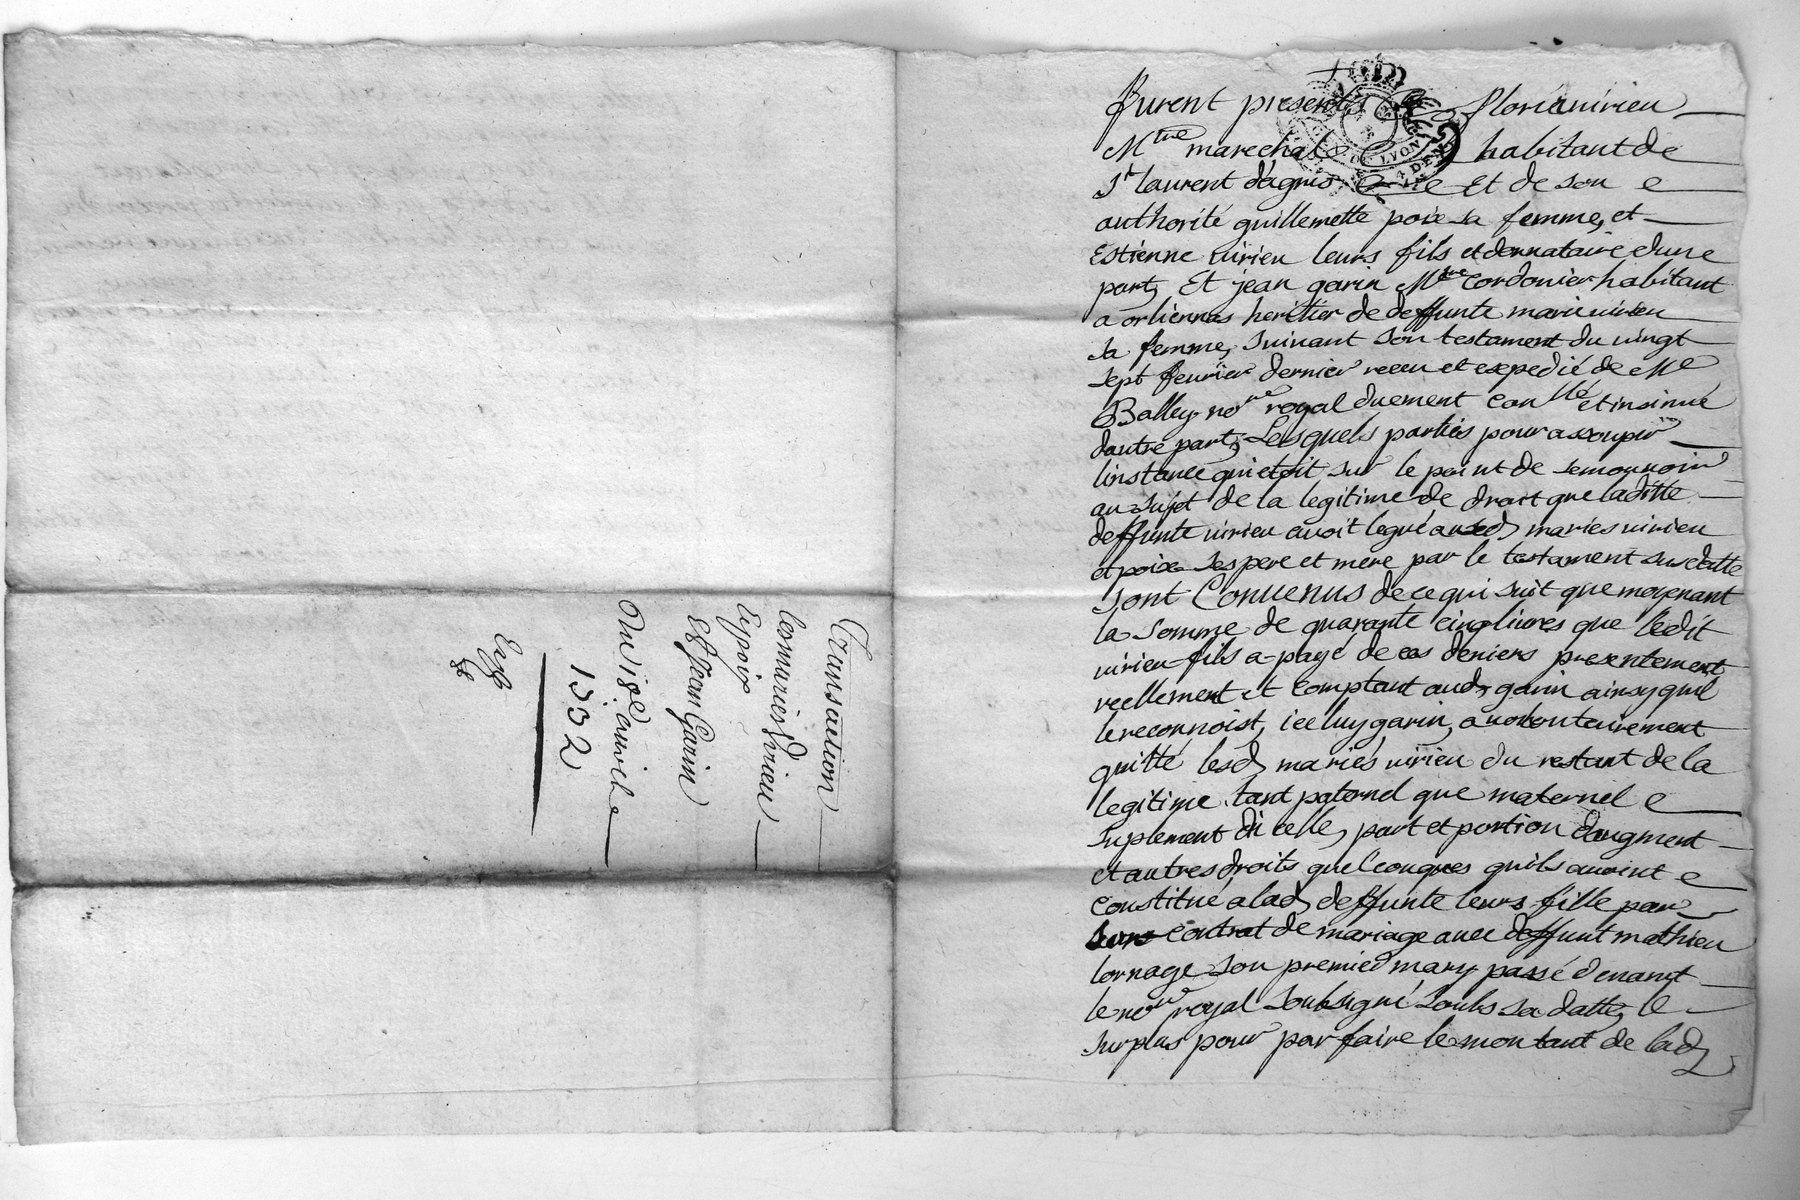 Transaction
les maries Virieu
et poix
et Jean Garin
du 18e
1732
Expé
DE LYON
4 DEN
furent presents florie virieu
Mtre marechal habitant de
St laurent dagnis Et de son
authorité guillemette poix sa femme, et
Estienne virieu leurs fils et donnataire dune
part, Et jean garin Mtre cordonier habitant
a orlienas heritier de deffunte marie virieu
sa femme, suivant son testament du vingt
sept feurier dernier receu et expedié de Me
Balley nore royal duement conllé et insinué
dautre part, Lesquels parties pour assoupir
linstance qui etoit sur le point de semouuoir
au sujet de la legitime de droit que laditte
deffunte virieu auoit legué ausd, maries virieu
et poix ses pere et mere par le testament susdatté
sont Convenus de ce qui suit que moyenant
la somme de quarante cinq liures que ledit
virieu fils a payé de ses deniers presentement
reellement et comptant aud, garin ainsy quil
le reconnoist, iceluy garin, a volontairement
quitté lesd, mariés virieu du restant de la
legitime tant paternel que maternel
suplement dicelle, part et portion daugment
et autres droits quelconques quils auoint
constitué a lad, deffunte leurs fille par
contrat de mariage auec deffunt mathieu
lornage son premier mary passé deuant
le nore royal soubsigné soubs sa datte, le
surplus pour parfaire le montant de lad,